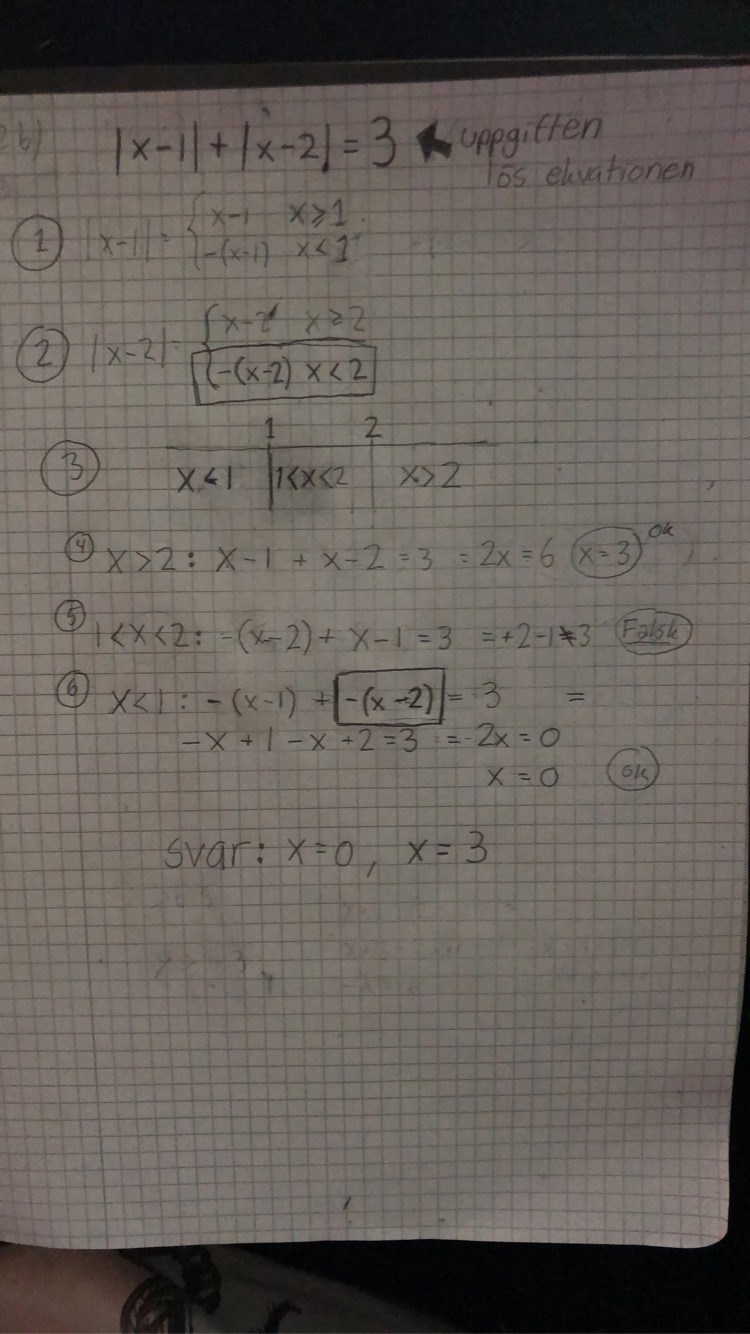 2b) |x-1| + |x-2| = 3 uppgiften
lös ekvationen
① |x-1| = { x-1 x≥1
-(x-1) x<1
② |x-2| = { x-2 x≥2
-(x-2) x<2
1 2
③ x<1 1<x<2 x>2
④ x>2: x-1 + x-2 = 3 = 2x=6 x=3 ok
⑤ 1<x<2: -(x-2) + x-1 = 3 = +2-1≠3 Falsk
⑥ x<1: -(x-1) + -(x-2) = 3 =
-x+1-x+2=3 = -2x=0
x=0 ok
svar: x=0, x=3